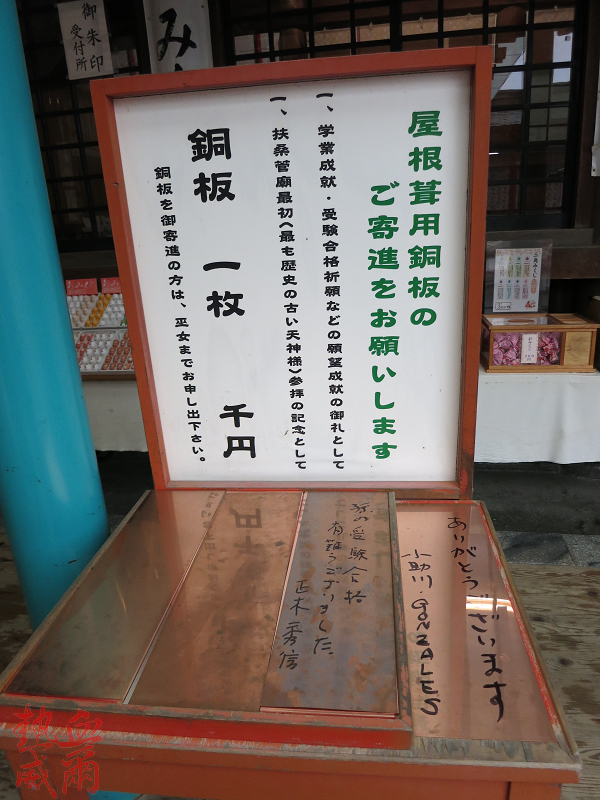 御朱印
受付所
み
屋根葺用銅板の
ご寄進をお願いします
一、学業成就・受験合格祈願などの願望成就の御礼として
一、扶桑菅廟最初(最も歴史の古い天神様)参拝の記念として
銅板 一枚 千円
銅板を御寄進の方は、巫女までお申し出下さい。
ありがとうございます
小助川・GONZALES
の受験合格
有難うございました
正木秀信